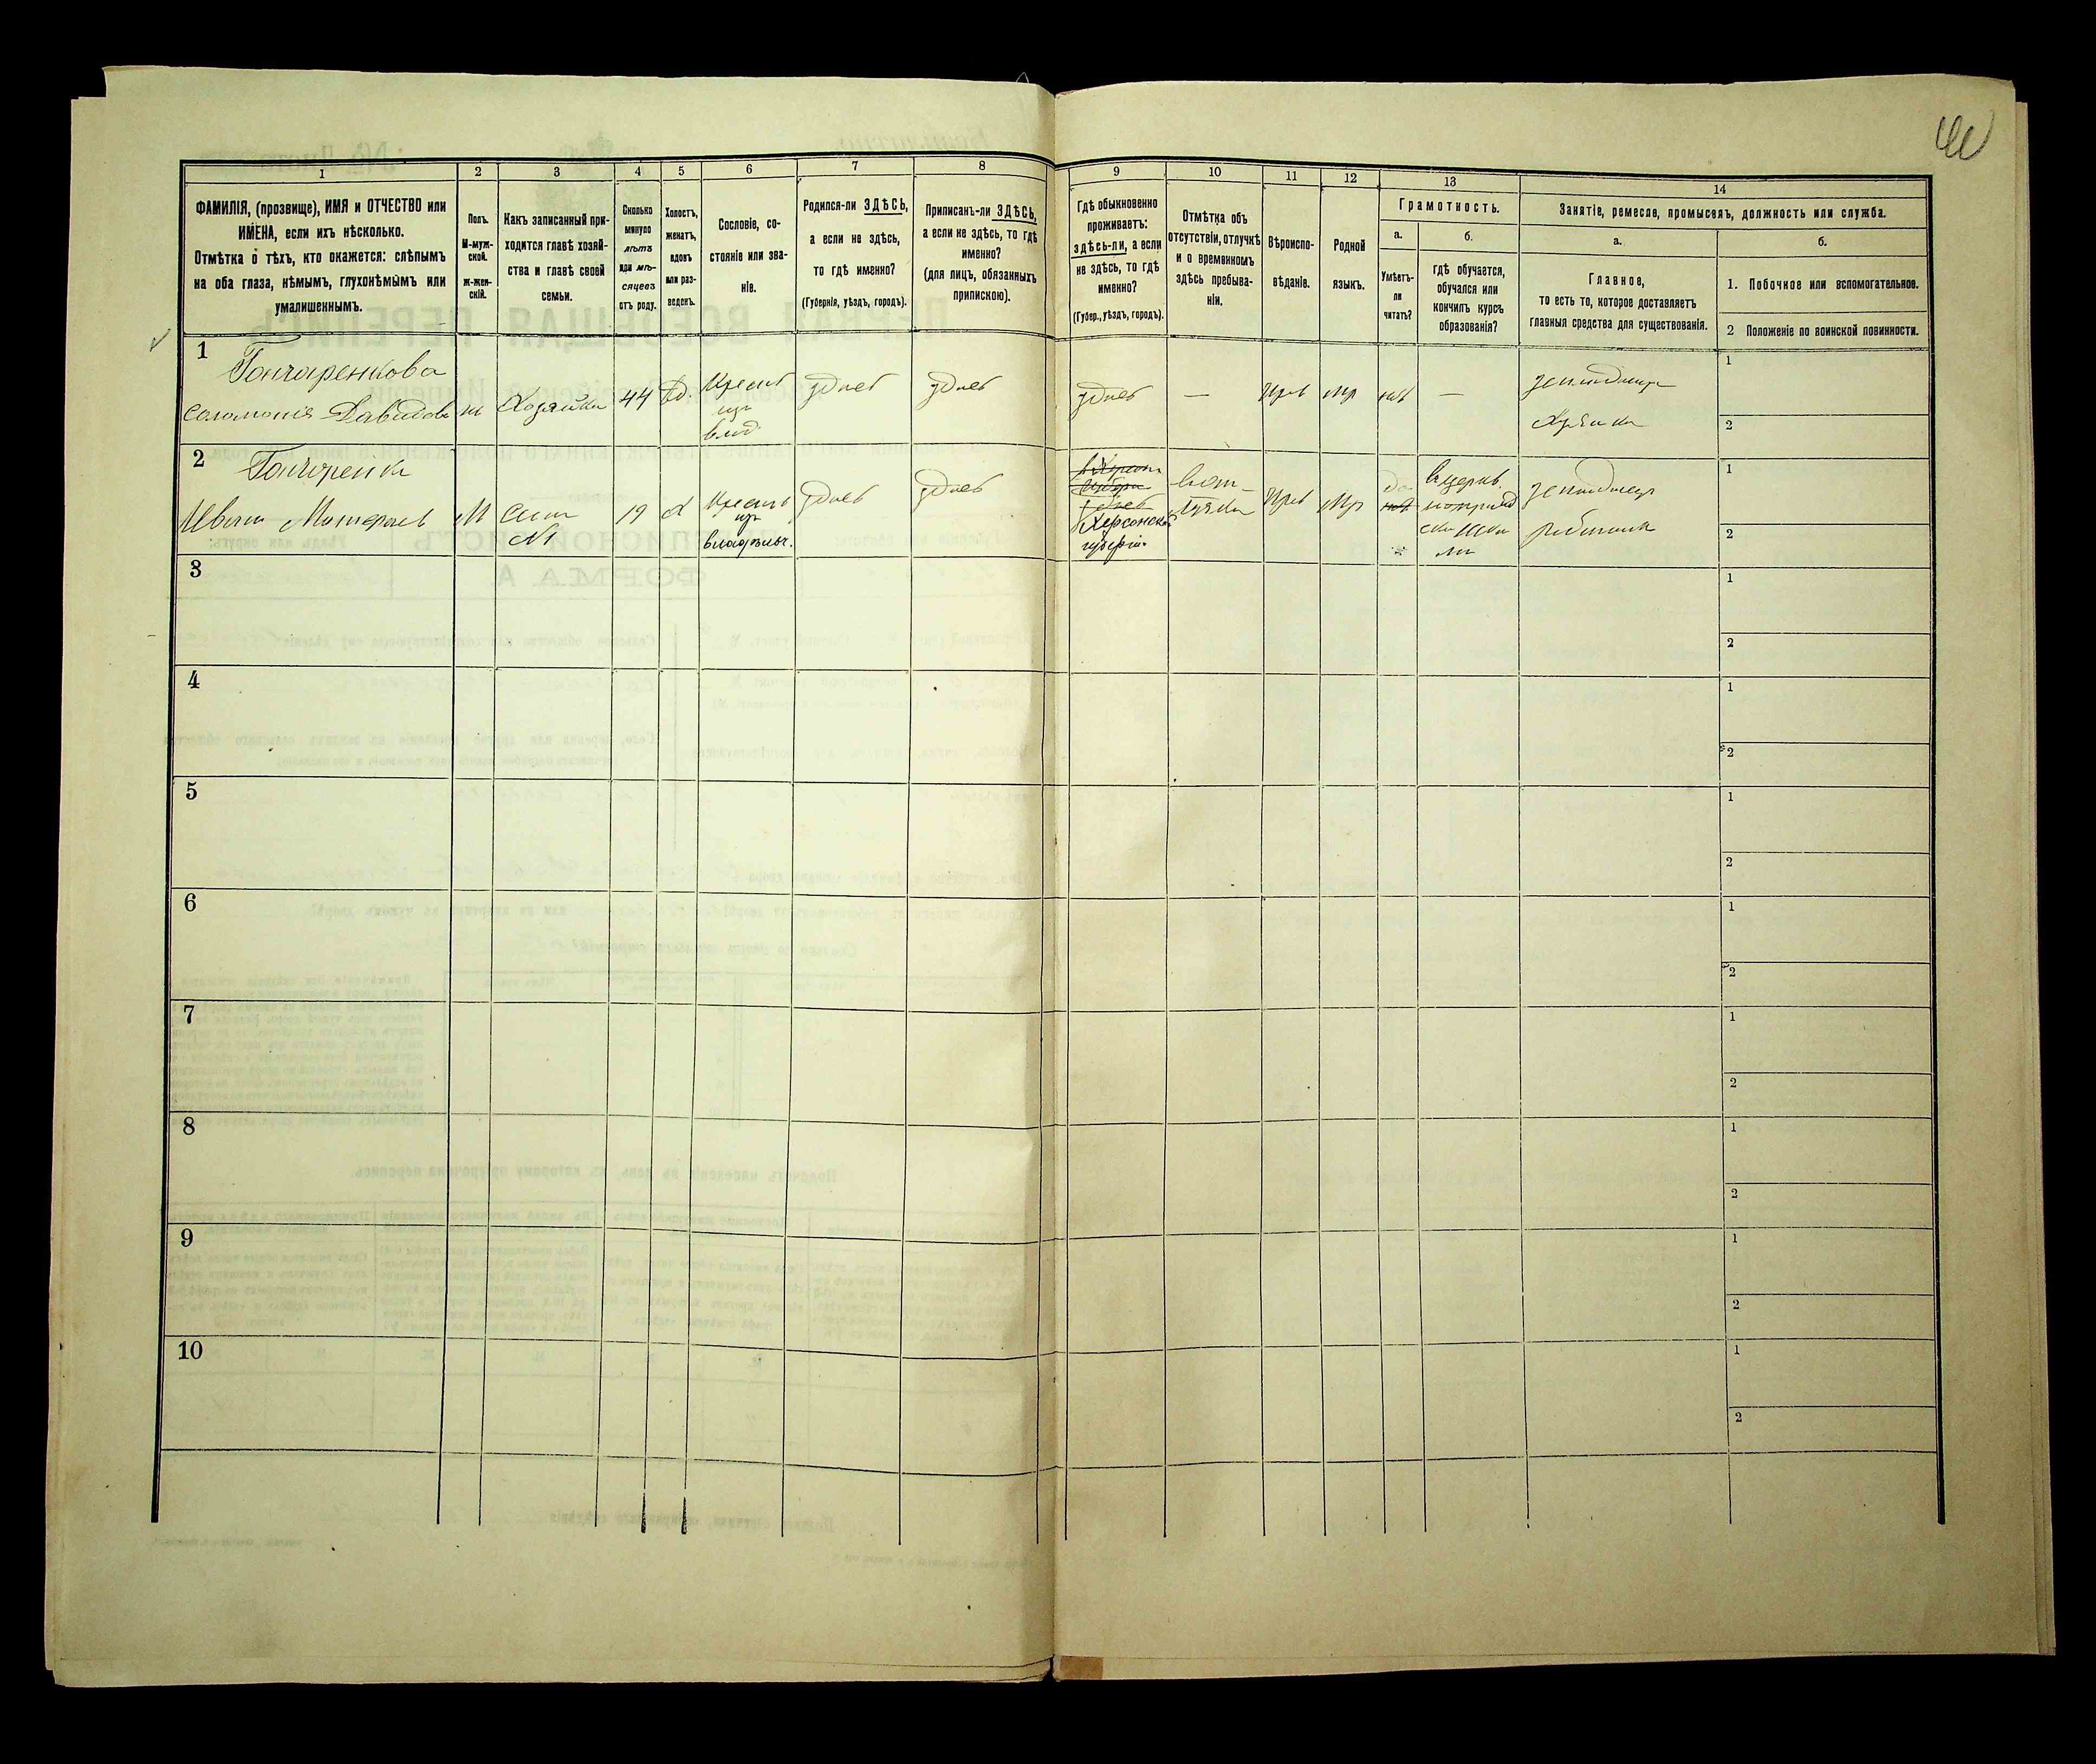 1
2
3
4
5
6
7
8
9
10
11
12
13
14
ФАМИЛІЯ, (прозвище), ИМЯ и ОТЧЕСТВО или
ИМЕНА, если ихъ нѣсколько.
Отмѣтка о тѣхъ, кто окажется: слѣпымъ
на оба глаза, нѣмымъ, глухонѣмымъ или
умалишеннымъ.
Полъ.
М-муж-
ской.
Ж-жен-
скій.
Какъ записанный при-
ходится главѣ хозяй-
ства и главѣ своей
семьи.
Сколько
минуло
лѣтъ
или мѣ-
сяцевъ
отъ роду.
Холостъ,
женатъ,
вдовъ
или раз-
веденъ.
Сословіе, со-
стояніе или зва-
ніе.
Родился-ли ЗДѢСЬ,
а если не здѣсь,
то гдѣ именно?
(Губернія, уѣздъ, городъ).
Приписанъ-ли ЗДѢСЬ,
а если не здѣсь, то гдѣ
именно?
(для лицъ, обязанныхъ
припискою).
Гдѣ обыкновенно
проживаетъ:
здѣсь-ли, а если
не здѣсь, то гдѣ
именно?
(Губер., уѣздъ, городъ).
Отмѣтка объ
отсутствіи, отлучкѣ
и о временномъ
здѣсь пребыва-
ніи.
Вѣроиспо-
вѣданіе.
Родной
языкъ.
Грамотность.
а.
Умѣетъ-
ли
читать?
б.
гдѣ обучается,
обучался или
кончилъ курсъ
образованія?
Занятіе, ремесло, промыселъ, должность или служба.
а.
Главное,
то есть то, которое доставляетъ
главныя средства для существованія.
б.
1. Побочное или вспомогательное.
2 Положеніе по воинской повинности.
1
Гончаренкова
Соломонія Давидова
ж
Хозяйка
44
Вд.
Крест
изъ
влад
здѣсь
здѣсь
здѣсь
—
Прав
Мр
нѣт
—
1
2
2
Гончаренко
Иванъ
М
Сынъ
№1
19
Х
Крест
изъ
владѣльч.
здѣсь
здѣсь
здѣсь
Херсонской
губерніи
Прав
Мр
Да
нѣт
1
2
3
1
2
4
1
2
5
1
2
6
1
2
7
1
2
8
1
2
9
1
2
10
1
2